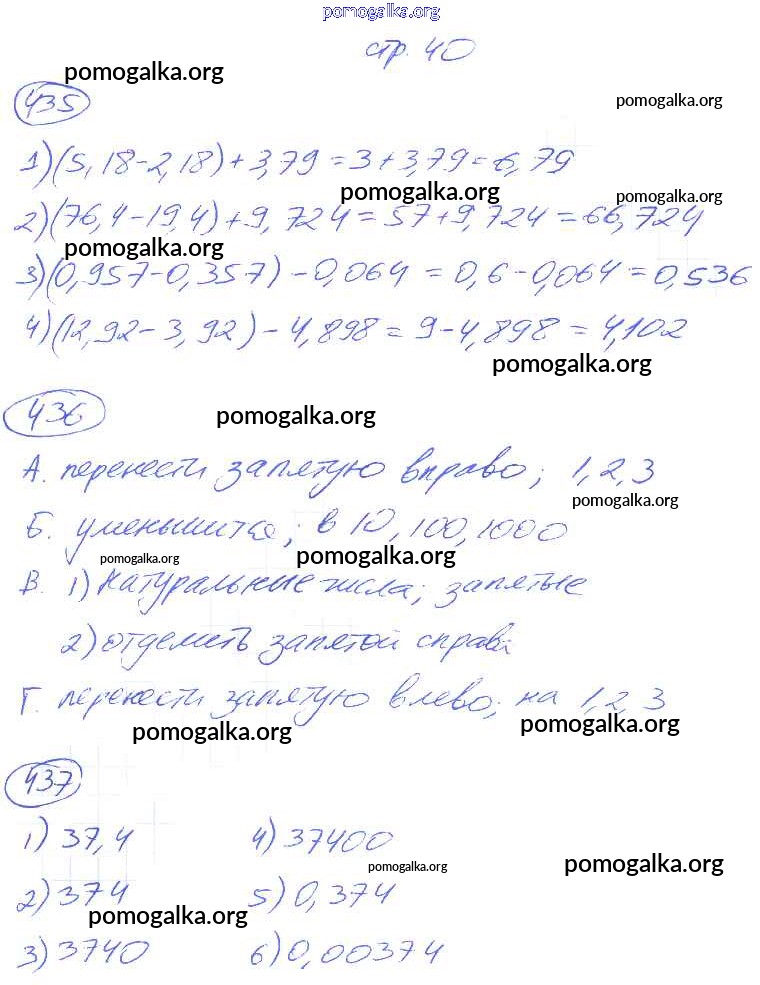 pomogalka.org
стр. 40
pomogalka.org
435
pomogalka.org
1) (5,18-2,18)+3,79=3+3,79=6,79
pomogalka.org
pomogalka.org
2) (76,4-19,4)+9,724=57+9,724=66,724
pomogalka.org
3) (0,957-0,357)-0,064=0,6-0,064=0,536
4) (12,92-3,92)-4,898=9-4,898=4,102
pomogalka.org
436
pomogalka.org
А. перенести запятую вправо; 1,2,3
pomogalka.org
Б. уменьшится; в 10, 100, 1000
pomogalka.org
pomogalka.org
В. 1) натуральные числа; запятые
2) отделить запятой справа
Г. перенести запятую влево; на 1,2,3
pomogalka.org
pomogalka.org
437
1) 37,4 4) 37400
pomogalka.org
pomogalka.org
2) 374 5) 0,374
pomogalka.org
3) 3740 6) 0,00374